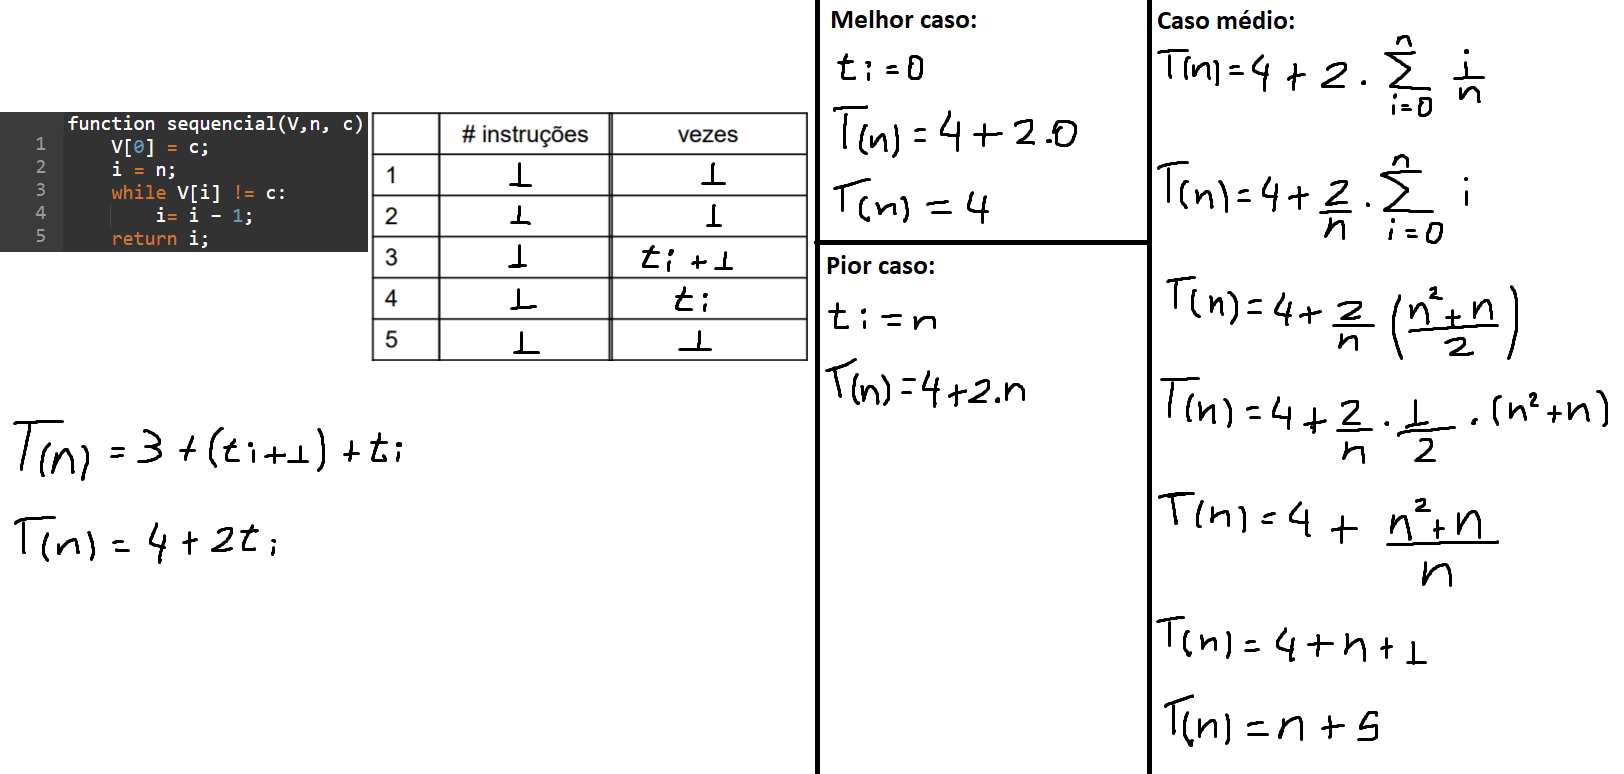 function sequencial(V,n, c)
1 V[0] = c;
2 i = n;
3 while V[i] != c:
4 i= i - 1;
5 return i;
# instruções vezes
1 1 1
2 1 1
3 1 ti + 1
4 1 ti
5 1 1
T(n) = 3 + (ti+1) + ti
T(n) = 4 + 2ti
Melhor caso:
ti = 0
T(n) = 4 + 2.0
T(n) = 4
Pior caso:
ti = n
T(n) = 4 + 2.n
Caso médio:
T(n) = 4 + 2 . ∑_{i=0}^{n} i/n
T(n) = 4 + 2/n . ∑_{i=0}^{n} i
T(n) = 4 + 2/n ((n²+n)/2)
T(n) = 4 + 2/n . 1/2 . (n²+n)
T(n) = 4 + (n²+n)/n
T(n) = 4 + n + 1
T(n) = n + 5